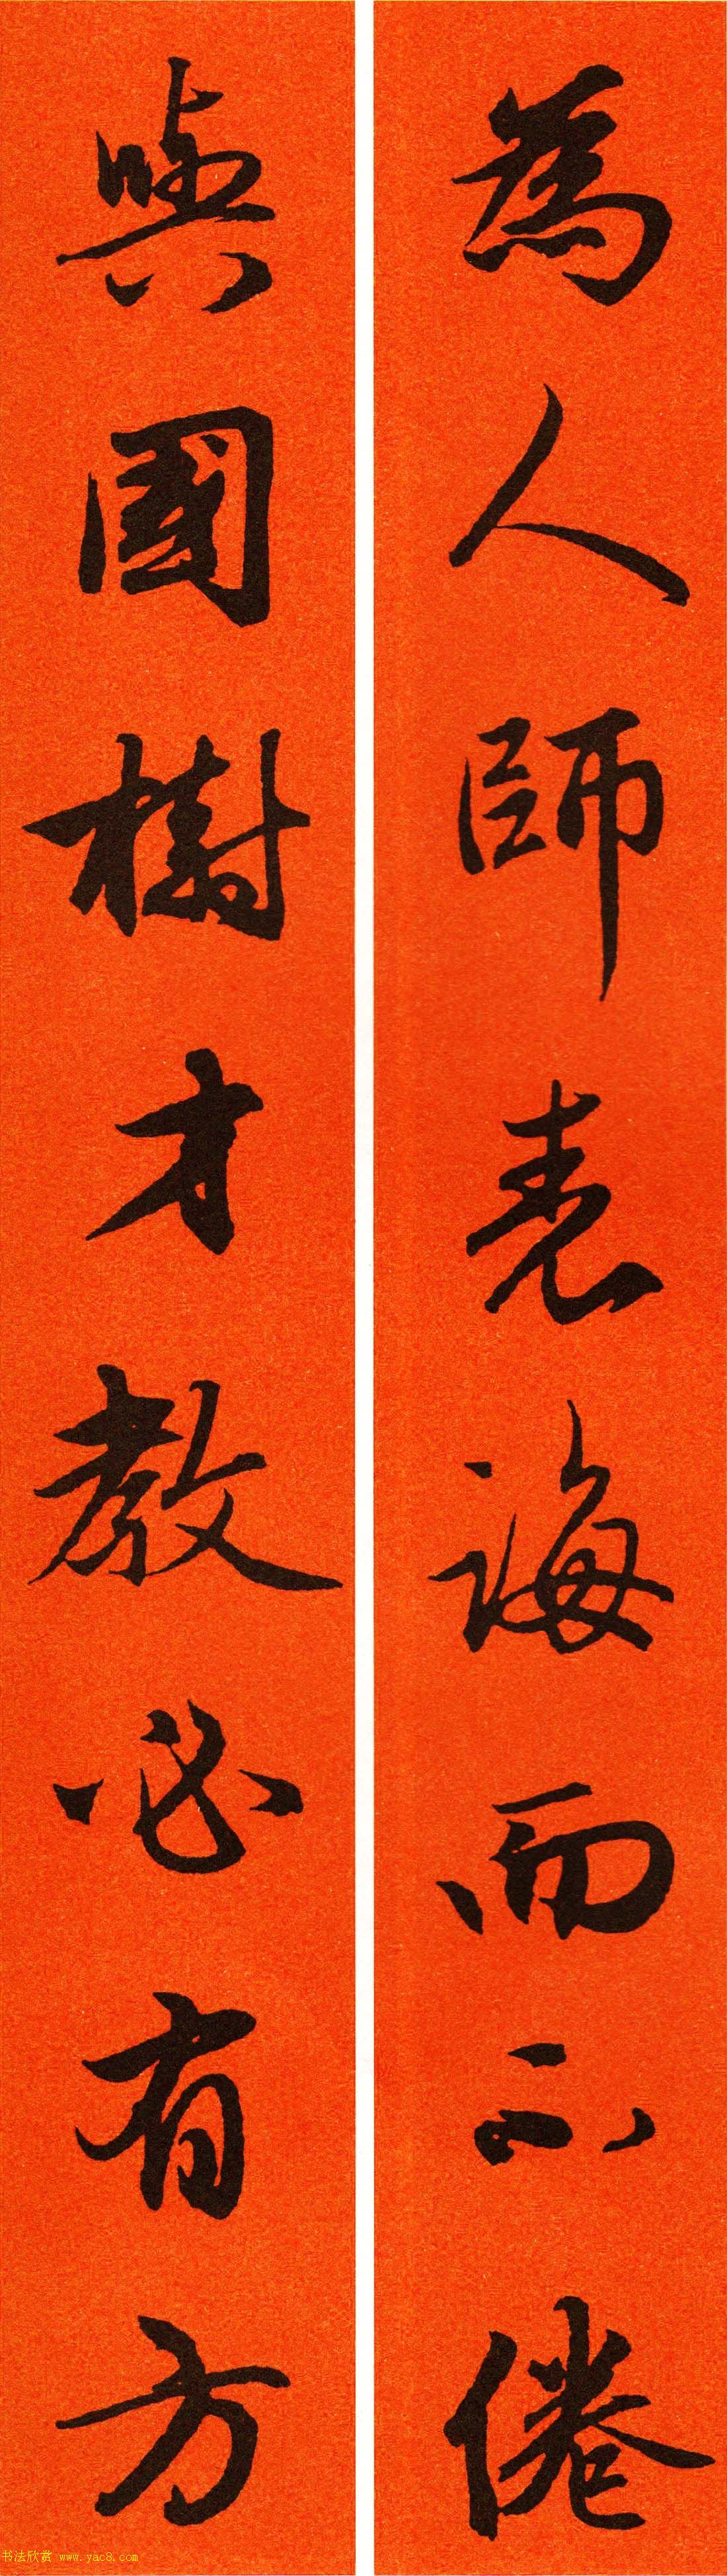 為人師表誨而不倦
與國樹才教必有方
书法欣赏 www.yac8.com